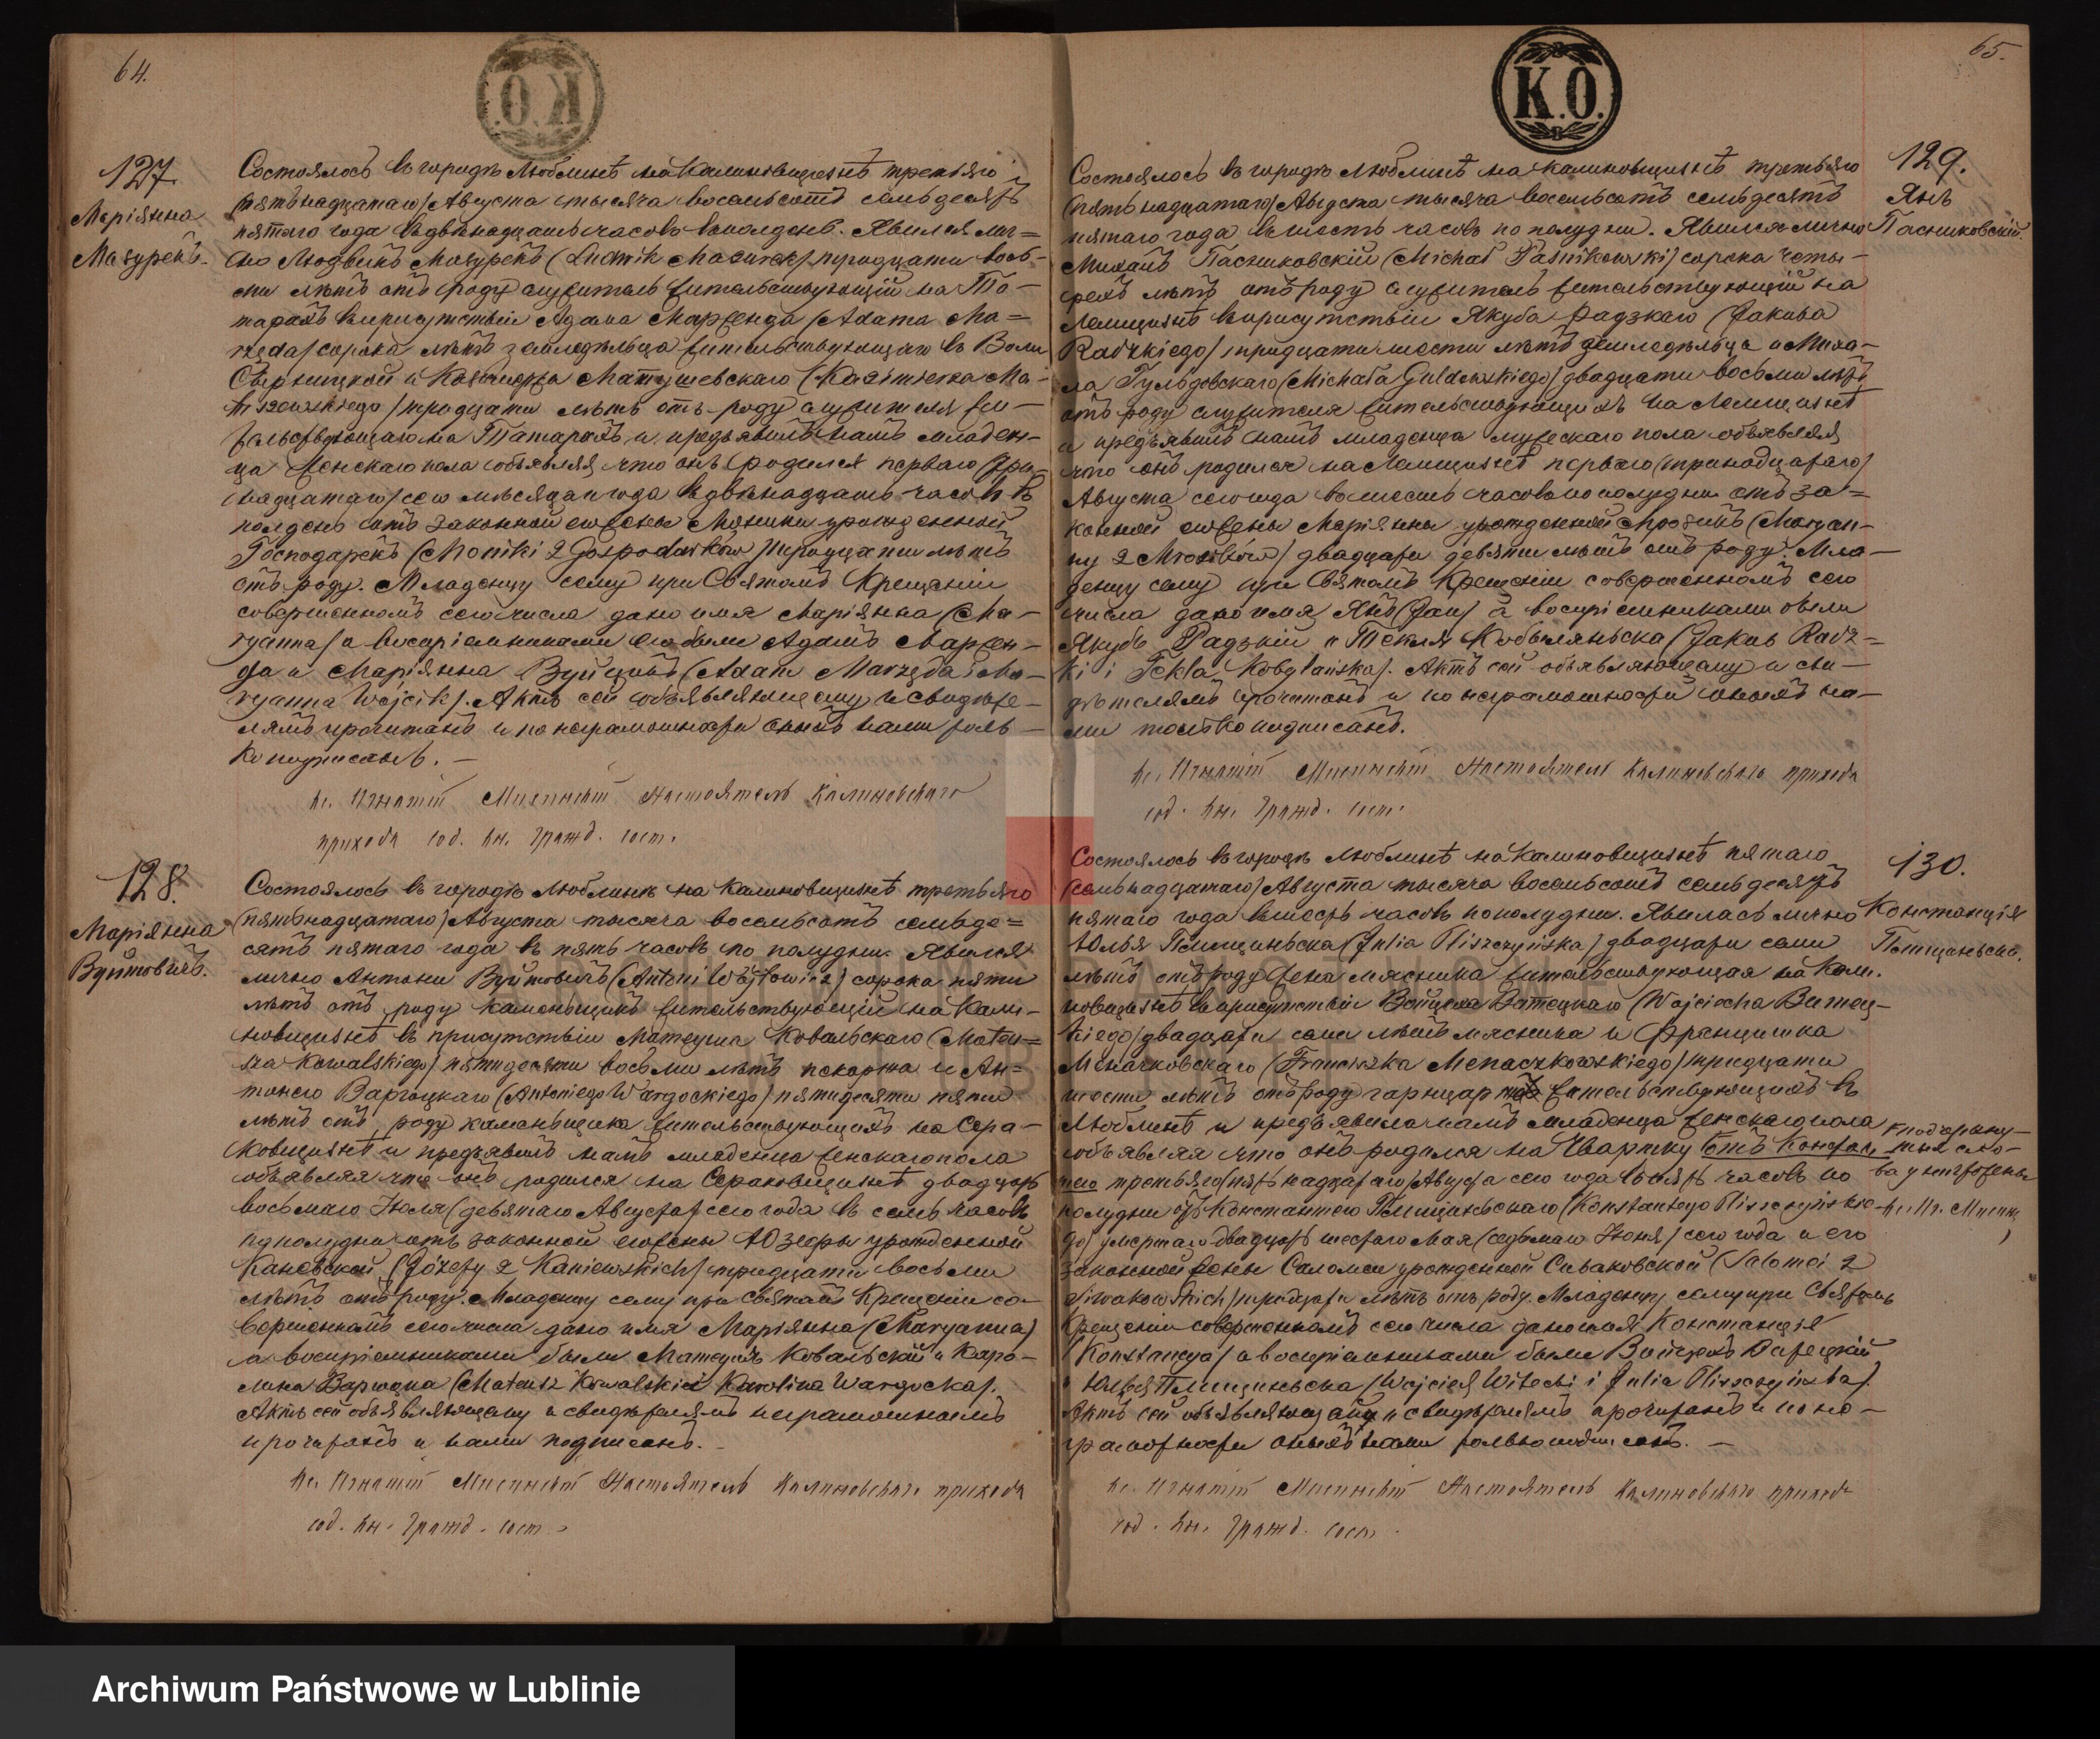 64.
K.O.
127.
Маріянна
Мазурекъ.
Состоялось въ городѣ Люблинѣ на Калиновщизнѣ третьяго
(пятьнадцатаго) Августа тысяча восемьсотъ семьдесятъ
пятаго года въ двѣнадцать часовъ въ полдень. Явился лич=
но Людвикъ Мазурекъ (Ludwik Mazurek) тридцати вось-
ми лѣтъ отъ роду служитель жительствующій на Та-
тарахъ въ присутствіи Адама Марженда (Adama Ma=
rzęda) сорока лѣтъ земледѣльца жительствующаго въ Воли
и Казимержа Матушевскаго (Kazimierza Ma-
tuszewskiego) тридцати лѣтъ отъ роду служителя жи-
тельствующаго на Татарахъ и предъявилъ намъ младен-
ца женскаго пола объявляя что онъ родился перваго (три-
надцатаго) сего мѣсяца и года въ двѣнадцать часовъ въ
полдень отъ законной его жены Моники урожденной
Господарекъ (Moniki z Gospodarków) тридцати лѣтъ
отъ роду. Младенцу сему при Святомъ Крещеніи
совершенномъ сего числа дано имя Маріянна (Ma-
ryanna) а воспріемниками его были Адамъ Маржен-
да и Маріянна Вуйцикъ (Adam Marzęda i Ma-
ryanna Wójcik). Актъ сей объявляющему и свидѣте-
лямъ прочитанъ и по неграмотности оныхъ нами толь-
ко подписанъ. —
Кс. Игнатій Настоятель Калиновскаго
прихода сод. кн. гражд. сост.
128.
Маріянна
Вуйтовичъ.
Состоялось въ городѣ Люблинѣ на Калиновщизнѣ третьяго
(пятьнадцатаго) Августа тысяча восемьсотъ семьде=
сятъ пятаго года въ пять часовъ по полудни. Явился
лично Антони Вуйтовичъ (Antoni Wójtowicz) сорока пяти
лѣтъ отъ роду каменьщикъ жительствующій на Кали-
новщизнѣ въ присутствіи Матеуша Ковальскаго (Mateu=
sza Kowalskiego) пятидесяти восьми лѣтъ пекаржа и Ан=
тонего Варгоцкаго (Antoniego Wargockiego) пятидесяти пяти
лѣтъ отъ роду каменьщика жительствующихъ на Сера-
ковщизнѣ и предъявилъ намъ младенца женскаго пола
объявляя что онъ родился на Сераковщизнѣ двадцать
восьмаго Іюля (девятаго Августа) сего года въ семь часовъ
по полудни отъ законной его жены Юзефы урожденной
Каневской (Józefy z Kaniewskich) тридцати восьми
лѣтъ отъ роду. Младенцу сему при Святомъ Крещеніи со-
вершенномъ сего числа дано имя Маріянна (Maryanna)
а воспріемниками были Матеушъ Ковальскій и Каро-
лина Варгоцка (Mateusz Kowalski i Karolina Wargocka).
Актъ сей объявляющему и свидѣтелямъ неграмотнымъ
прочитанъ и нами подписанъ. —
Кс. Игнатій Настоятель Калиновскаго прихода
сод. кн. гражд. сост.
65.
K.O.
129.
Янъ
Пасниковскій.
Состоялось въ городѣ Люблинѣ на Калиновщизнѣ третьяго
(пятьнадцатаго) Августа тысяча восемьсотъ семьдесятъ
пятаго года въ шесть часовъ по полудни. Явился лично
Михалъ Пасниковскій (Michał Paśnikowski) сорока четы-
рехъ лѣтъ отъ роду служитель жительствующій на
Лемщизнѣ въ присутствіи Якуба Радзкаго (Jakuba
Radzkiego) тридцати шести лѣтъ земледѣльца и Миха-
ла Гульдовскаго (Michała Guldowskiego) двадцати восьми лѣтъ
отъ роду служителя жительствующихъ на Лемщизнѣ
и предъявилъ намъ младенца мужескаго пола объявляя
что онъ родился на Лемщизнѣ перваго (тринадцатаго)
Августа сего года въ шесть часовъ по полудни отъ за=
конной его жены Маріянны урожденной Мрозикъ (Maryan-
ny z Mrozików) двадцати девяти лѣтъ отъ роду. Мла-
денцу сему при Святомъ Крещеніи совершенномъ сего
числа дано имя Янъ (Jan) а воспріемниками были
Якубъ Радзкій и Текля Кобыляньска (Jakub Radz=
ki i Tekla Kobylańska). Актъ сей объявляющему и сви-
дѣтелямъ прочитанъ и по неграмотности оныхъ на-
ми только подписанъ.
Кс. Игнатій Настоятель Калиновскаго прихода
сод. кн. гражд. сост.
130.
Констанція
Плищиньска.
Состоялось въ городѣ Люблинѣ на Калиновщизнѣ пятаго
(семьнадцатаго) Августа тысяча восемьсотъ семьдесятъ
пятаго года въ шесть часовъ по полудни. Явилась лично
Юлья Плищиньска (Julia Pliszczyńska) двадцати семи
лѣтъ отъ роду жена мясника жительствующая на Кали-
новщизнѣ въ присутствіи Войцеха (Wojciecha
kiego) двадцати семи лѣтъ мясника и Францишка
Меначковскаго (Franciszka Menaczkowskiego) тридцати
шести лѣтъ отъ роду гарнцаржа жительствующихъ въ
Люблинѣ и предъявила намъ младенца женскаго пола
объявляя что онъ родился на Чвартку отъ Констан-
таго третьяго (пятьнадцатаго) Августа сего года въ пять часовъ по
полудни отъ Константего Плищиньскаго (Konstantego Pliszczyńskie-
go) умершаго двадцать шестаго Мая (седьмаго Іюня) сего года и его
законной жены Саломеи урожденной Сиваковской (Salomei z
Siwakowskich) тридцати лѣтъ отъ роду. Младенцу сему при Святомъ
Крещеніи совершенномъ сего числа дано имя Констанція
(Konstancya) а воспріемниками были Войцѣхъ
и Юлья Плищиньска (Wojciech Witecki i Julia Pliszczyńska).
Актъ сей объявляющему и свидѣтелямъ прочитанъ и по не-
грамотности оныхъ нами только подписанъ. —
подчеркну-
тыя сло-
ва уничтожены
Кс. Иг.
Кс. Игнатій Настоятель Калиновскаго прихода
сод. кн. гражд. сост.
Archiwum Państwowe w Lublinie